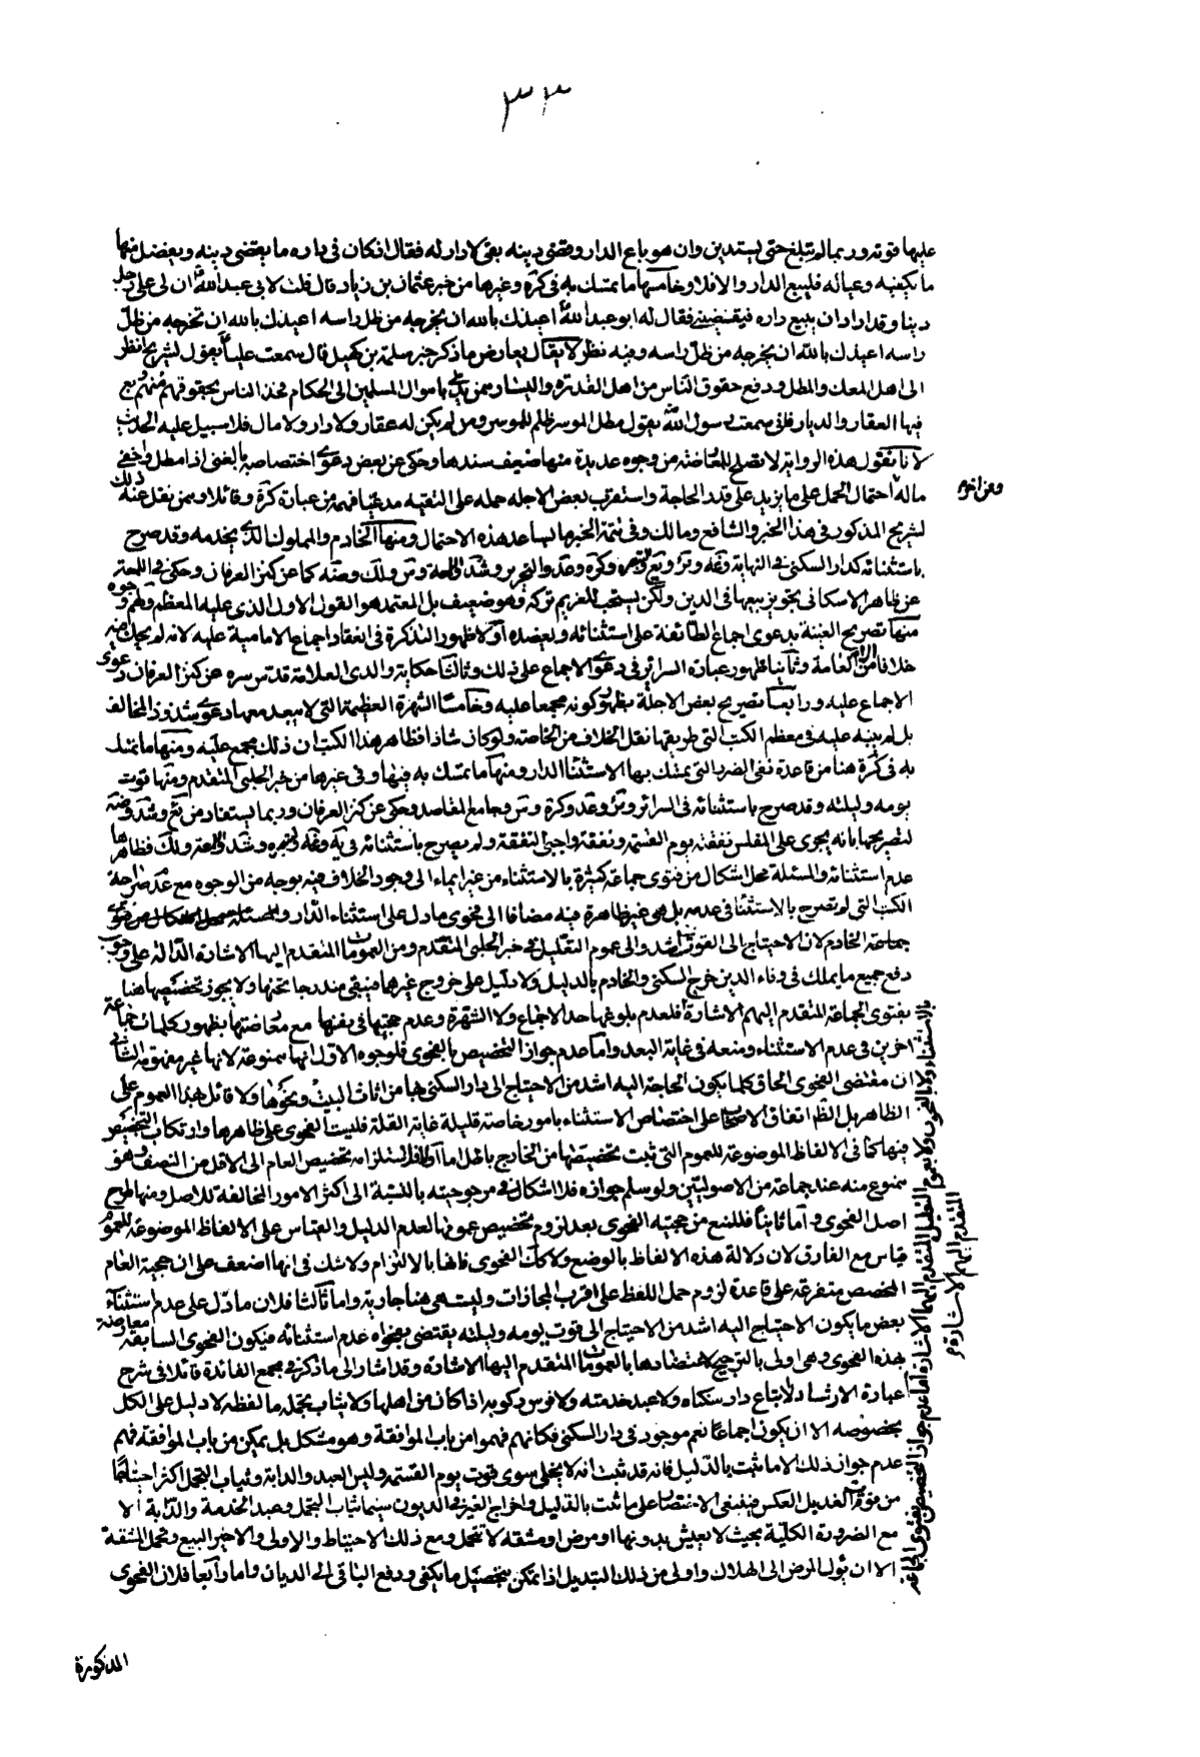 ٣٣
عليها قوته وربما لم تبلغ حتى يستدين وان هو باع الدار وقضى دينه بقى لا دار له فقال ان كان فى داره ما يقضى دينه ويفضل منها
ما يكفيه وعياله فليبع الدار والا فلا وخامسها ما تمسك به فى كرة وغيرها من خبر عثمان بن زياد قال قلت لابى عبد الله ان لى على رجل
دينا وقد اراد ان يبيع داره فيقضينى فقال له ابو عبد الله اعيذك بالله ان يخرجه من ظل راسه اعيذك بالله ان تخرجه من ظل
راسه اعيذك بالله ان يخرجه من ظل راسه وفيه نظر لا يقال يعارض ما ذكر خبر سلمة بن كهيل قال سمعت عليا يقول لشريح انظر
الى اهل المعك والمطل ودفع حقوق الناس من اهل القدرة واليسار ممن يدلى باموال المسلمين الى الحكام فخذ للناس بحقوقهم منهم وبع
فيها العقار والديار فانى سمعت رسول الله يقول مطل الموسر ظلم للموسر ومن لم يكن له عقار ولا دار ولا مال فلا سبيل عليه الحديث
لانا نقول هذه الرواية لا تصلح للمعارضة من وجوه عديدة منها ضعيف سندها وحكى عن بعض دعوى اختصاصه بالغنى اذا مطل واخفى
ماله احتمال الحمل على ما يزيد على قدر الحاجة واستقرب بعض الاجله حمله على التقيه مدعيا فهمه من عبارة كرة وقائلا وممن نقل عنه ذلك
لشريح المذكور فى هذا الخبر والشافعى ومالك وفى تتمة الخبر ما يساعد هذه الاحتمال ومنها الخادم والمملوك الذى يخدمه وقد صرح
باستثنائه كدار السكنى فى النهاية
عن ظاهر الاسكافى تجويز بيعها فى الدين ولكن يستحب للغريم تركه وهو ضعيف بل المعتمد هو القول الاول الذى عليه المعظم ولهم وجوه
منها تصريح الغنية بدعوى اجماع الطائفة على استثنائه ويعضده اولا ظهور التذكرة فى انعقاد اجماع الامامية عليه لانه لم يحك فيه
خلافا الا من العامة وثانيا ظهور عبارة السرائر فى دعوى الاجماع على ذلك وثالثا حكاية والدى العلامة قدس سره عن كنز العرفان دعوى
الاجماع عليه ورابعا تصريح بعض الاجلة بظهور كونه مجمعا عليه وخامسا الشهرة العظيمة التى لا يبعد معها دعوى شذوذ المخالف
بل لم ينبه عليه فى معظم الكتب التى طريقها نقل الخلاف من الخاصة ولو كان شاذا فظاهر هذا الكتب ان ذلك مجمع عليه ومنها ما تمسك
به فى كرة هنا من قاعدة نفى الضرر التى تمسك بها لاستثناء الدار ومنها ما تمسك به فيها وفى غيرها من خبر الحلبى المتقدم ومنها قوت
يومه وليلته وقد صرح باستثنائه فى السرائر
لتصريحها بانه يجرى على المفلس نفقته يوم القسمة ونفقة واجبى النفقة ولم يصرح باستثنائه
عدم استثنائه والمسئلة محل اشكال من فتوى جماعة كثيرة بالاستثناء من غير ايماء الى وجود الخلاف فيه بوجه من الوجوه مع عدم صراحة
الكتب التى لم تصرح بالاستثناء فى عدمه بل هى غير ظاهرة فيه مضافا الى فحوى ما دل على استثناء الدار و
جماعة الخادم لان الاحتياج الى القوت اشد والى عموم التعليل فى خبر الحلبى المتقدم ومن العمومات المتقدم اليها الاشارة الدالة على وجوب
دفع جميع ما يملك فى وفاء الدين خرج السكنى والخادم بالدليل ولا دليل على خروج غيرهما فيبقى مندرجا تحتها ولا يجوز تخصيصها هنا
بفتوى الجماعة المتقدم اليهم الاشارة فلعدم بلوغها حد الاجماع ولا الشهرة وعدم حجيتها فى نفسها مع معارضتها بظهور كلمات جماعة
اخرين فى عدم الاستثناء ومنعه فى غاية البعد واما عدم جواز التخصيص بالفحوى فلوجوه الاول انها ممنوعة لانها غير مفهومة الثانى
ان مقتضى الفحوى الحاق كلما يكون الحاجة اليه اشد من الاحتياج الى دار السكنى بها من اثاث البيت ونحوها ولا قائل بهذا العموم على
الظاهر بل الظاهر اتفاق الاصحاب على اختصاص الاستثناء بامور خاصة قليلة غاية القلة فليست الفحوى على ظاهرها وارتكاب التخصيص
فيها كما فى الالفاظ الموضوعة للعموم التى ثبت تخصيصها من الخارج باطل اما اولا فلاستلزامه تخصيص العام الى الاقل من النصف وهو
ممنوع منه عند جماعة من الاصوليين ولو سلم جوازه فلا اشكال فى مرجوحيته بالنسبة الى اكثر الامور المخالفة للاصل ومنها طرح
اصل الفحوى واما ثانيا فللمنع من حجيته الفحوى بعد لزوم تخصيص عمومها لعدم الدليل والقياس على الالفاظ الموضوعة للعموم
قياس مع الفارق لان دلالة هذه الالفاظ بالوضع ولا كك الفحوى فانها بالالتزام ولا شك فى انها اضعف على ان حجية العام
المخصص متفرعة على قاعدة لزوم حمل اللفظ على اقرب المجازات وليست هى هنا جارية واما ثالثا فلان ما دل على عدم استثناء
بعض ما يكون الاحتياج اليه اشد من الاحتياج الى قوت يومه وليلته يقتضى بفحواه عدم استثنائه فيكون الفحوى السابقة معارضة
بهذه الفحوى وهى اولى بالترجيح لاعتضادها بالعمومات المتقدم اليها الاشارة وقد اشار الى ما ذكر فى مجمع الفائدة قائلا فى شرح
عبارة الارشاد ولا تباع دار سكناه ولا عبد خدمته ولا فرس ركوبه اذا كان من اهلها ولا ثياب تجمله ما لفظه لا دليل على الكل
بخصوصه الا ان يكون اجماعا نعم موجود فى دار السكنى فكانهم فهموا من باب الموافقة وهو مشكل بل يمكن من باب الموافقة فهم
عدم جواز ذلك الا ما ثبت بالدليل فانه قد ثبت انه لا يخلى سوى قوت يوم القسمة وليس العبد والدابة وثياب التجمل اكثر احتياجا
من قوت الغد بل العكس فينبغى الاختصار على ما ثبت بالدليل واخراج الغير فى الديون سيما ثياب التجمل وعبد الخدمة والدابة الا
مع الضرورة الكلية بحيث لا يعيش بدونها او مرض او مشقة لا تتحمل ومع ذلك الاحتياط والاولى والاخير البيع وتحمل المشقة
الا ان يؤل المرض الى الهلاك واولى من ذلك التبديل اذا تمكن بتحصيل ما يكفى ودفع الباقى الى الديان واما رابعا فلان الفحوى
وعن اخر
المتقدم اليهم الاشارة
المذكورة